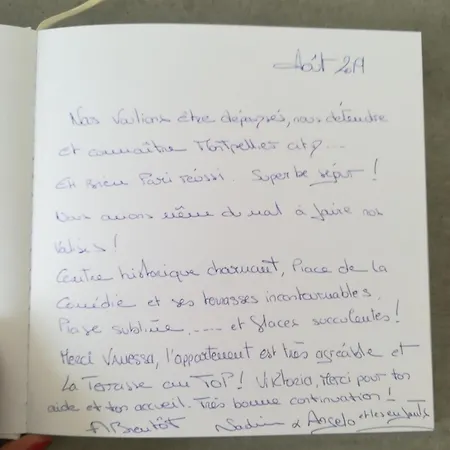 Août 2019
Nous voulions être dépaysés, nous détendre
et connaître Montpellier city...
Eh bien Pari réussi. Superbe séjour !
Nous avons même du mal à faire nos
valises !
Centre historique charmant, Place de la
Comédie et ses terrasses incontournables.
Plage sublime ..... et glaces succulentes !
Merci Vanessa, l'appartement est très agréable et
la Terrasse au TOP ! Viktoria, Merci pour ton
aide et ton accueil. Très bonne continuation !
A Bientôt Nadine & Angelo et les enfants